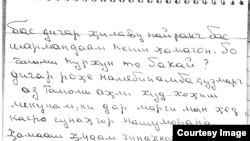 бас дигар ҳилаву найранг бас
шармандаам пеши ҳамагон. Бо
чашми пурхун то бакай?
дигар роҳе намебинам ба ҷуз марг
аз Тамоми аҳли худ хоҳиш
мекунам, ки дар марги ман ҳеҷ
касро гунаҳгор нашуморанд.
Ҳамааш худам гунаҳкор
Courtesy Image